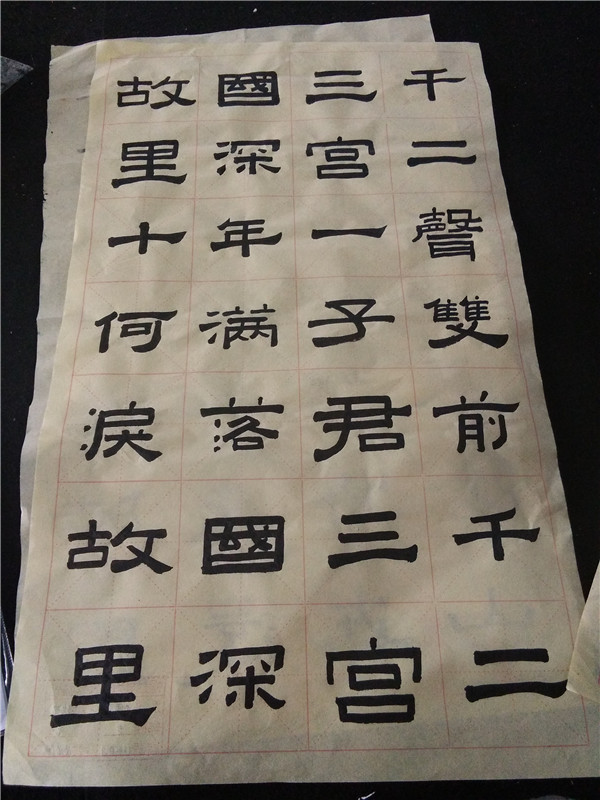 故國三千
里深宫二
十年一聲
何满子雙
淚落君前
故國三千
里深宫二